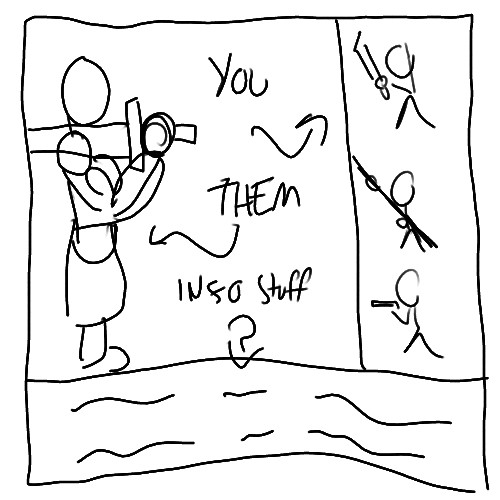 YOU
THEM
INFO Stuff
?